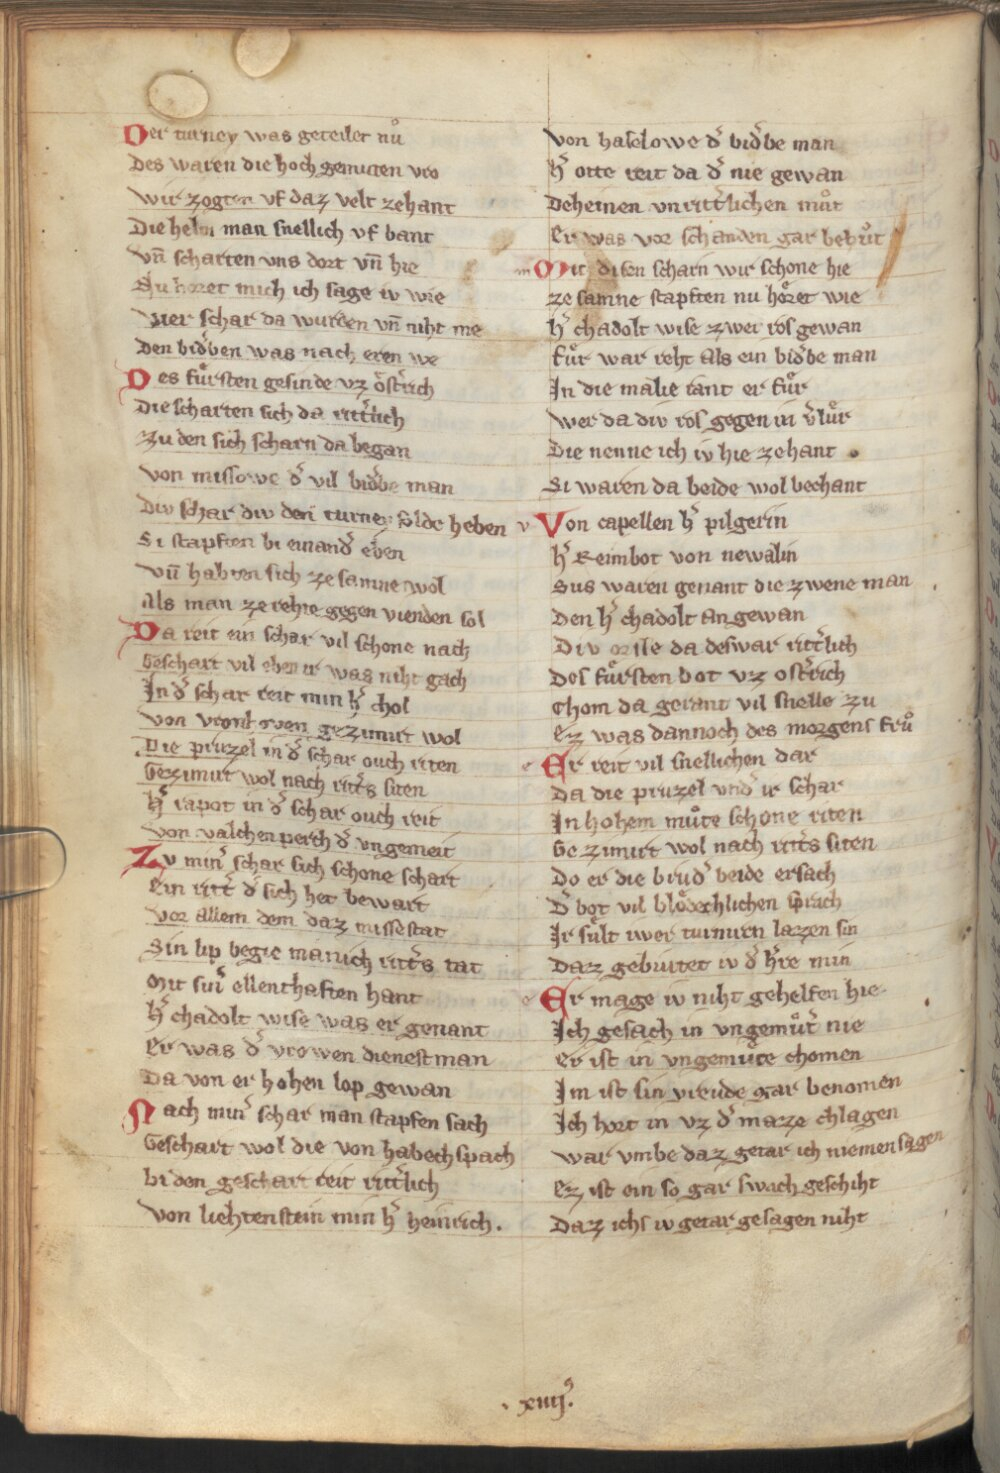 Der turney was geteilet nuͦ
Des waren die hoch gemuten vro
wir zogten vf daz velt zehant
Die helm man snellich vf bant
vn̄ scharten vns dort vn̄ hie
Nu horet mich ich sage iv wie
vier schar da wurden vn̄ niht me
Den bid͛ben was nach eren we
Des fuͤrsten gesinde vz oͤst͛rich
Die scharten sich da ritt͛lich
zu den sich scharn da began
von missowe d͛ vil bid͛be man
Div schar div den turney solde heben
Si stapften bi einand͛ eben
vn̄ habten sich ze samne wol
Als man ze rehte gegen vienden sol
Da reit ein schar vil schone nach
Geschart vil eben ir was niht gach
In d͛ schar reit min h͛ chol
von vronhoven gezimirt wol
Die pruzel in d͛ schar ouch riten
Gezimirt wol nach ritt͛s siten
h͛ rapot in d͛ schar ouch reit
von valchenperch d͛ vngemeit
Zv min͛ schar sich schone schart
Ein ritt͛ d͛ sich het bewart
vor allem dem daz missestat
Sin lip begie manich ritt͛s tat
Mit sin͛ ellenthaften hant
h͛ chadolt weise was er genant
Er was d͛ vrowen dienestman
Da von er hohen lop gewan
Nach min͛ schar man stapfen sach
Geschart wol die von habechspach
bi den geschart reit ritt͛lich
von liehtenstein min h͛ heinrich.
von haselowe d͛ bid͛be man
h͛ otte reit da d͛ nie gewan
Deheinen vnritt͛lichen muͦt
Er was vor schanden gar behuͦt
m Mit disen scharn wir schone hie
ze samne stapften nu hoͤret wie
h͛ chadolt wise zwei ros gewan
fuͤr war reht als ein bid͛be man
In die malie tant er fuͦr
wer da div ros gegen in v͛luͦr
Die nenne ich iv hie zehant
Si waren da beide wol bechant
v Von capellen h͛ pilgerin
h͛ Reimbot von newalin
Sus waren genant die zwene man
Den h͛ chadolt an gewan
Div orsse da deswar ritt͛lich
Des fuͤrsten bot vz ost͛rich
chom da gerant vil snelle zu
Ez was dannoch des morgens fruͦ
e Er reit vil snellichen dar
Da die pruzel vnd͛ ir schar
In hohem muͦte schone riten
Gezimirt wol nach ritt͛s siten
Do er die brud͛ beide ersach
D͛ bot vil bloͤdechlichen sprach
Ir suͤlt iwer turnirn lazen sin
Daz gebiutet iv d͛ h͛re min
e Er mage iv niht gehelfen hie
Ich gesach in vngemuͦt͛ nie
Er ist in vngemuͤte chomen
Im ist sin vreude gar benomen
Ich hort in vz d͛ maze chlagen
war vmbe daz getar ich niemen sagen
Ez ist ein so gar swach geschiht
Daz ichs iv getar gesagen niht
. xiiij⁹.